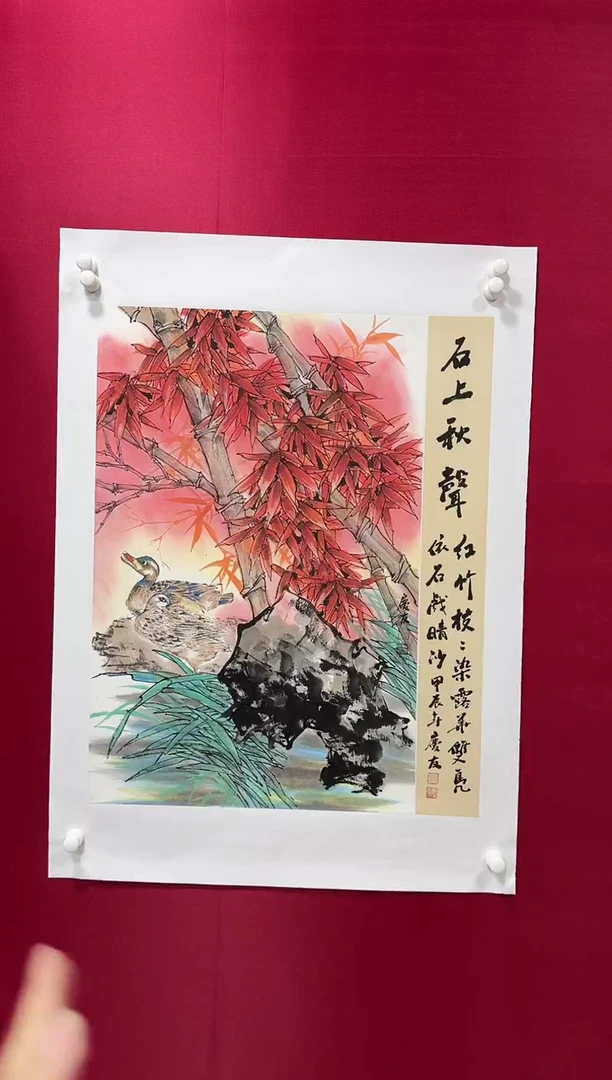 石上秋聲
紅竹枝〻染露華雙鳧
依石戲晴沙甲辰年慶友
慶友